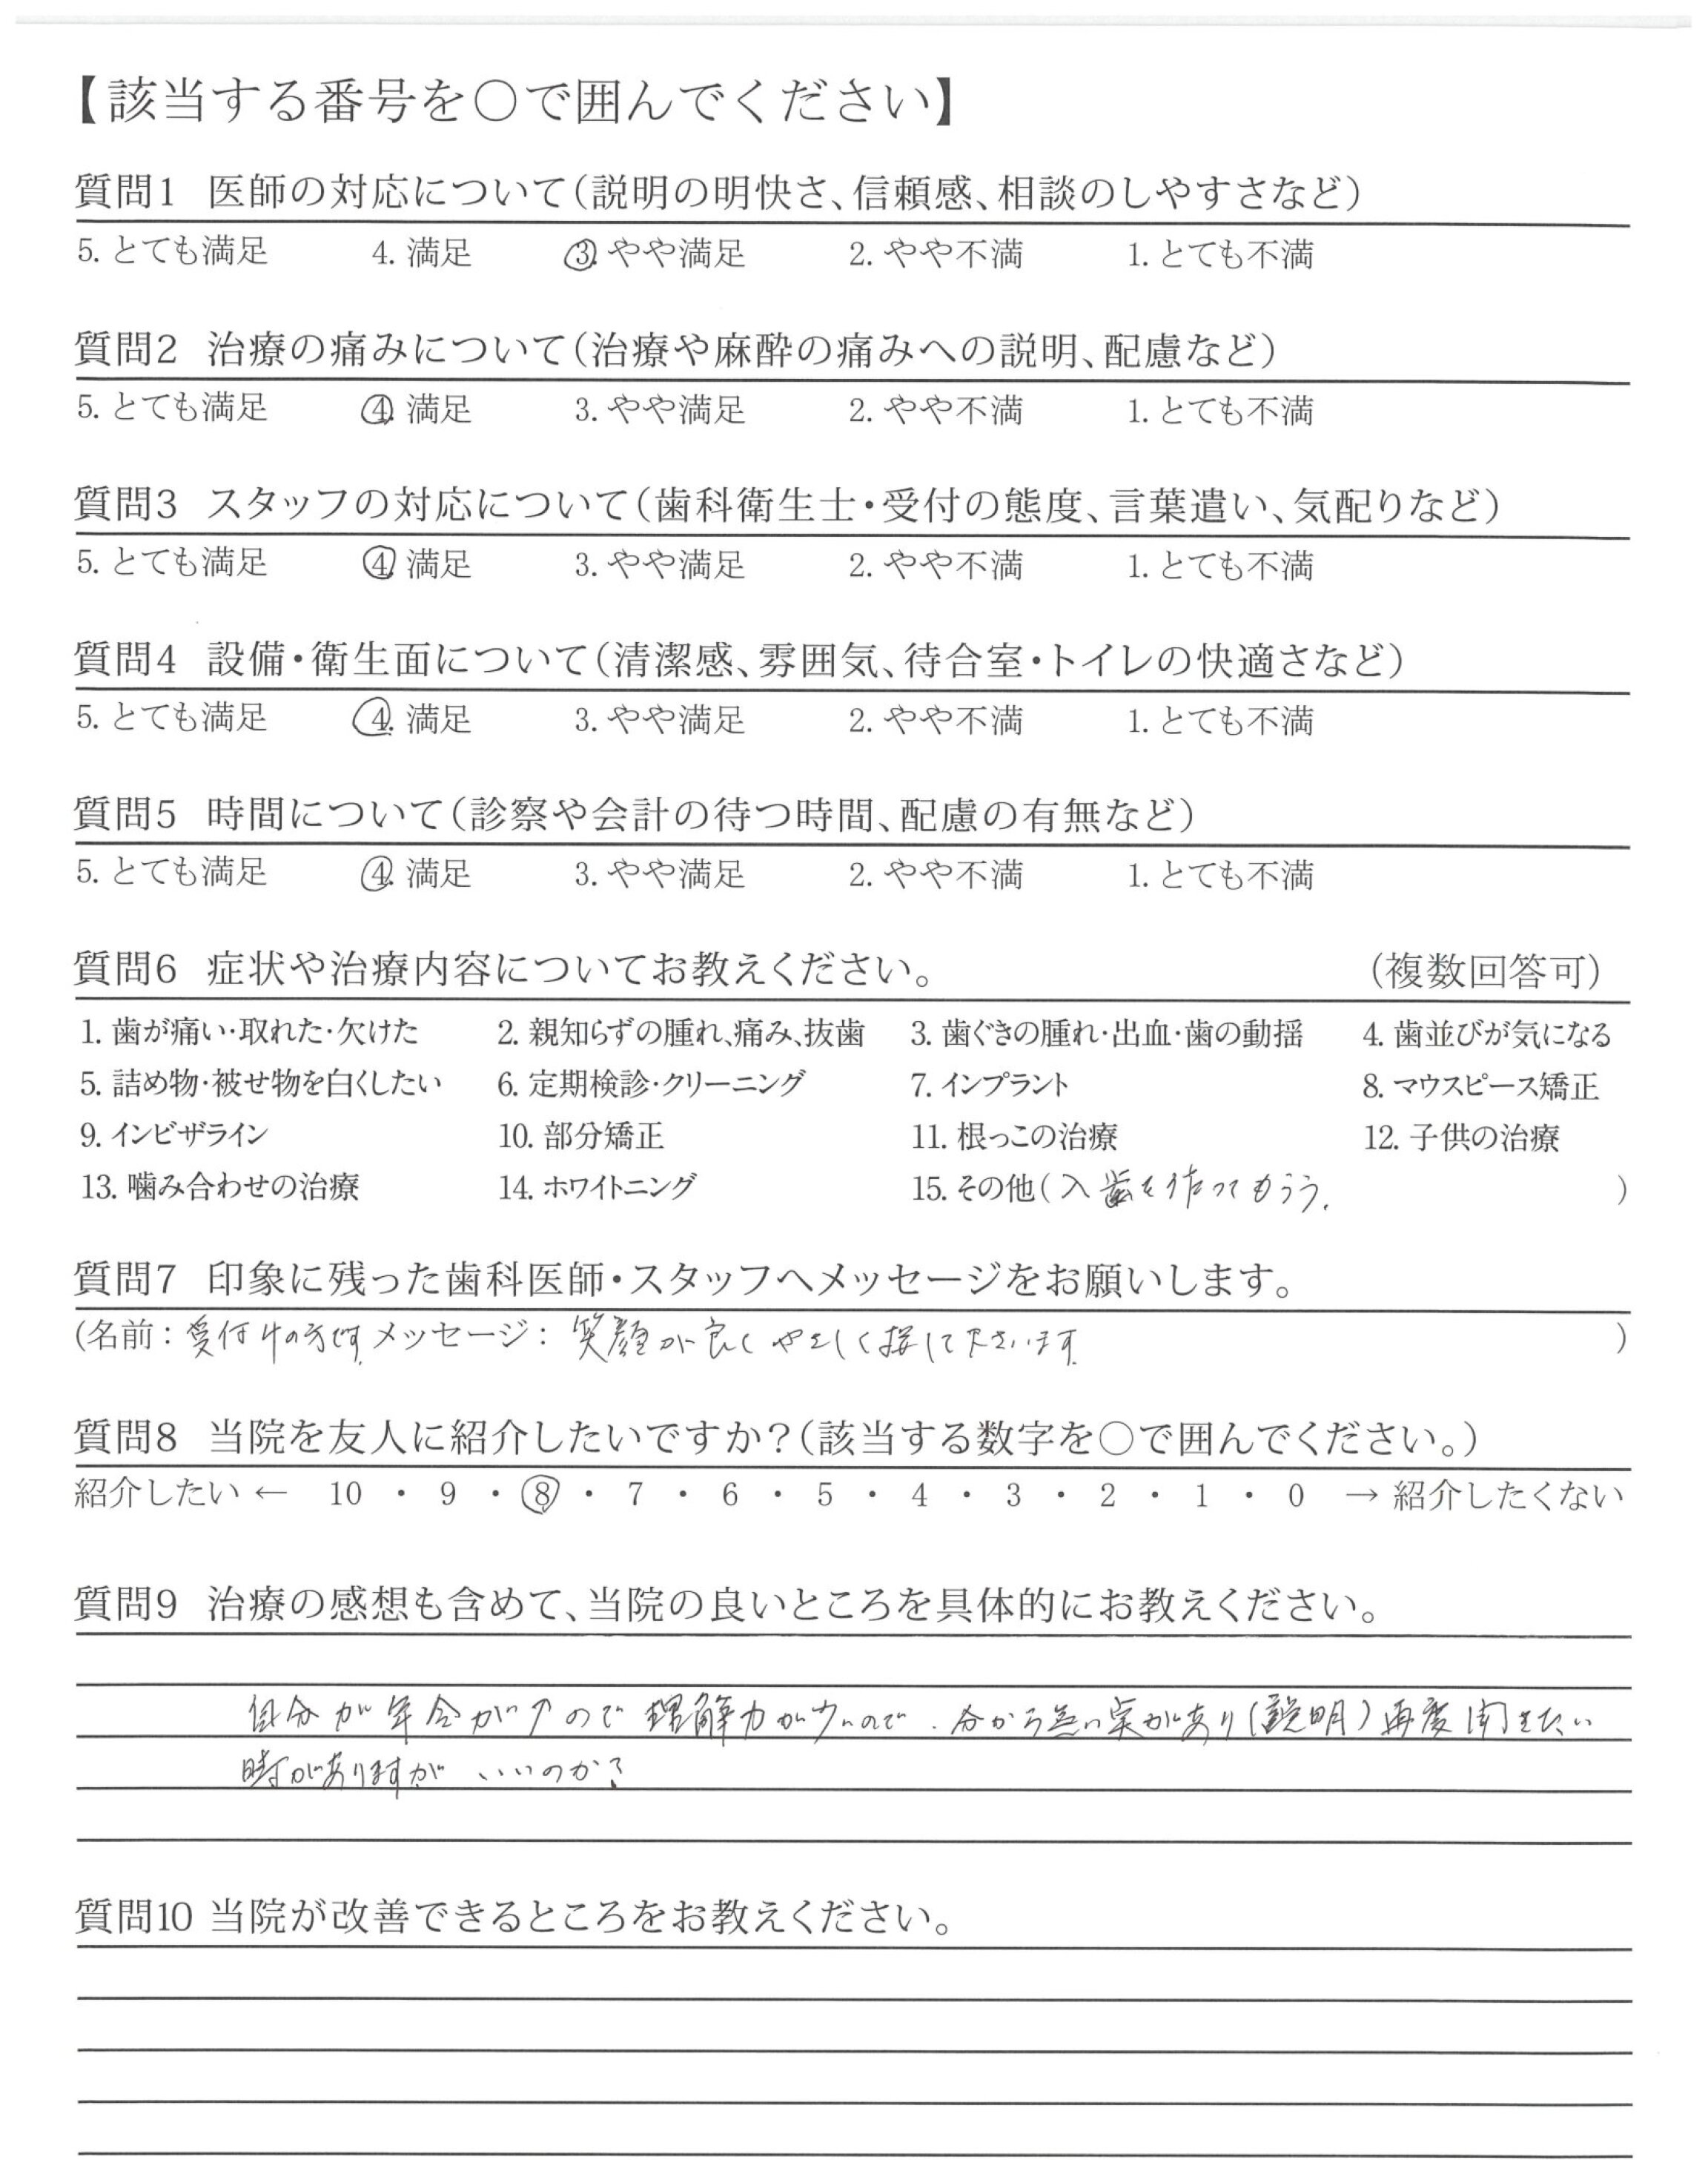 【該当する番号を○で囲んでください】
質問1 医師の対応について(説明の明快さ、信頼感、相談のしやすさなど)
5. とても満足 4. 満足 3. やや満足 2. やや不満 1. とても不満
質問2 治療の痛みについて(治療や麻酔の痛みへの説明、配慮など)
5. とても満足 4. 満足 3. やや満足 2. やや不満 1. とても不満
質問3 スタッフの対応について(歯科衛生士・受付の態度、言葉遣い、気配りなど)
5. とても満足 4. 満足 3. やや満足 2. やや不満 1. とても不満
質問4 設備・衛生面について(清潔感、雰囲気、待合室・トイレの快適さなど)
5. とても満足 4. 満足 3. やや満足 2. やや不満 1. とても不満
質問5 時間について(診察や会計の待つ時間、配慮の有無など)
5. とても満足 4. 満足 3. やや満足 2. やや不満 1. とても不満
質問6 症状や治療内容についてお教えください。 (複数回答可)
1. 歯が痛い・取れた・欠けた 2. 親知らずの腫れ、痛み、抜歯 3. 歯ぐきの腫れ・出血・歯の動揺 4. 歯並びが気になる
5. 詰め物・被せ物を白くしたい 6. 定期検診・クリーニング 7. インプラント 8. マウスピース矯正
9. インビザライン 10. 部分矯正 11. 根っこの治療 12. 子供の治療
13. 噛み合わせの治療 14. ホワイトニング 15. その他(入歯を作ってもらう. )
質問7 印象に残った歯科医師・スタッフへメッセージをお願いします。
(名前:受付けの方です メッセージ:笑顔が良くやさしく接して下さいます )
質問8 当院を友人に紹介したいですか?(該当する数字を○で囲んでください。)
紹介したい ← 10 ・ 9 ・ 8 ・ 7 ・ 6 ・ 5 ・ 4 ・ 3 ・ 2 ・ 1 ・ 0 → 紹介したくない
質問9 治療の感想も含めて、当院の良いところを具体的にお教えください。
自分が年令が↑ので理解力が少いので. 分から無い実があり(説明)再度聞きたい
時がありますが いいのか?
質問10 当院が改善できるところをお教えください。